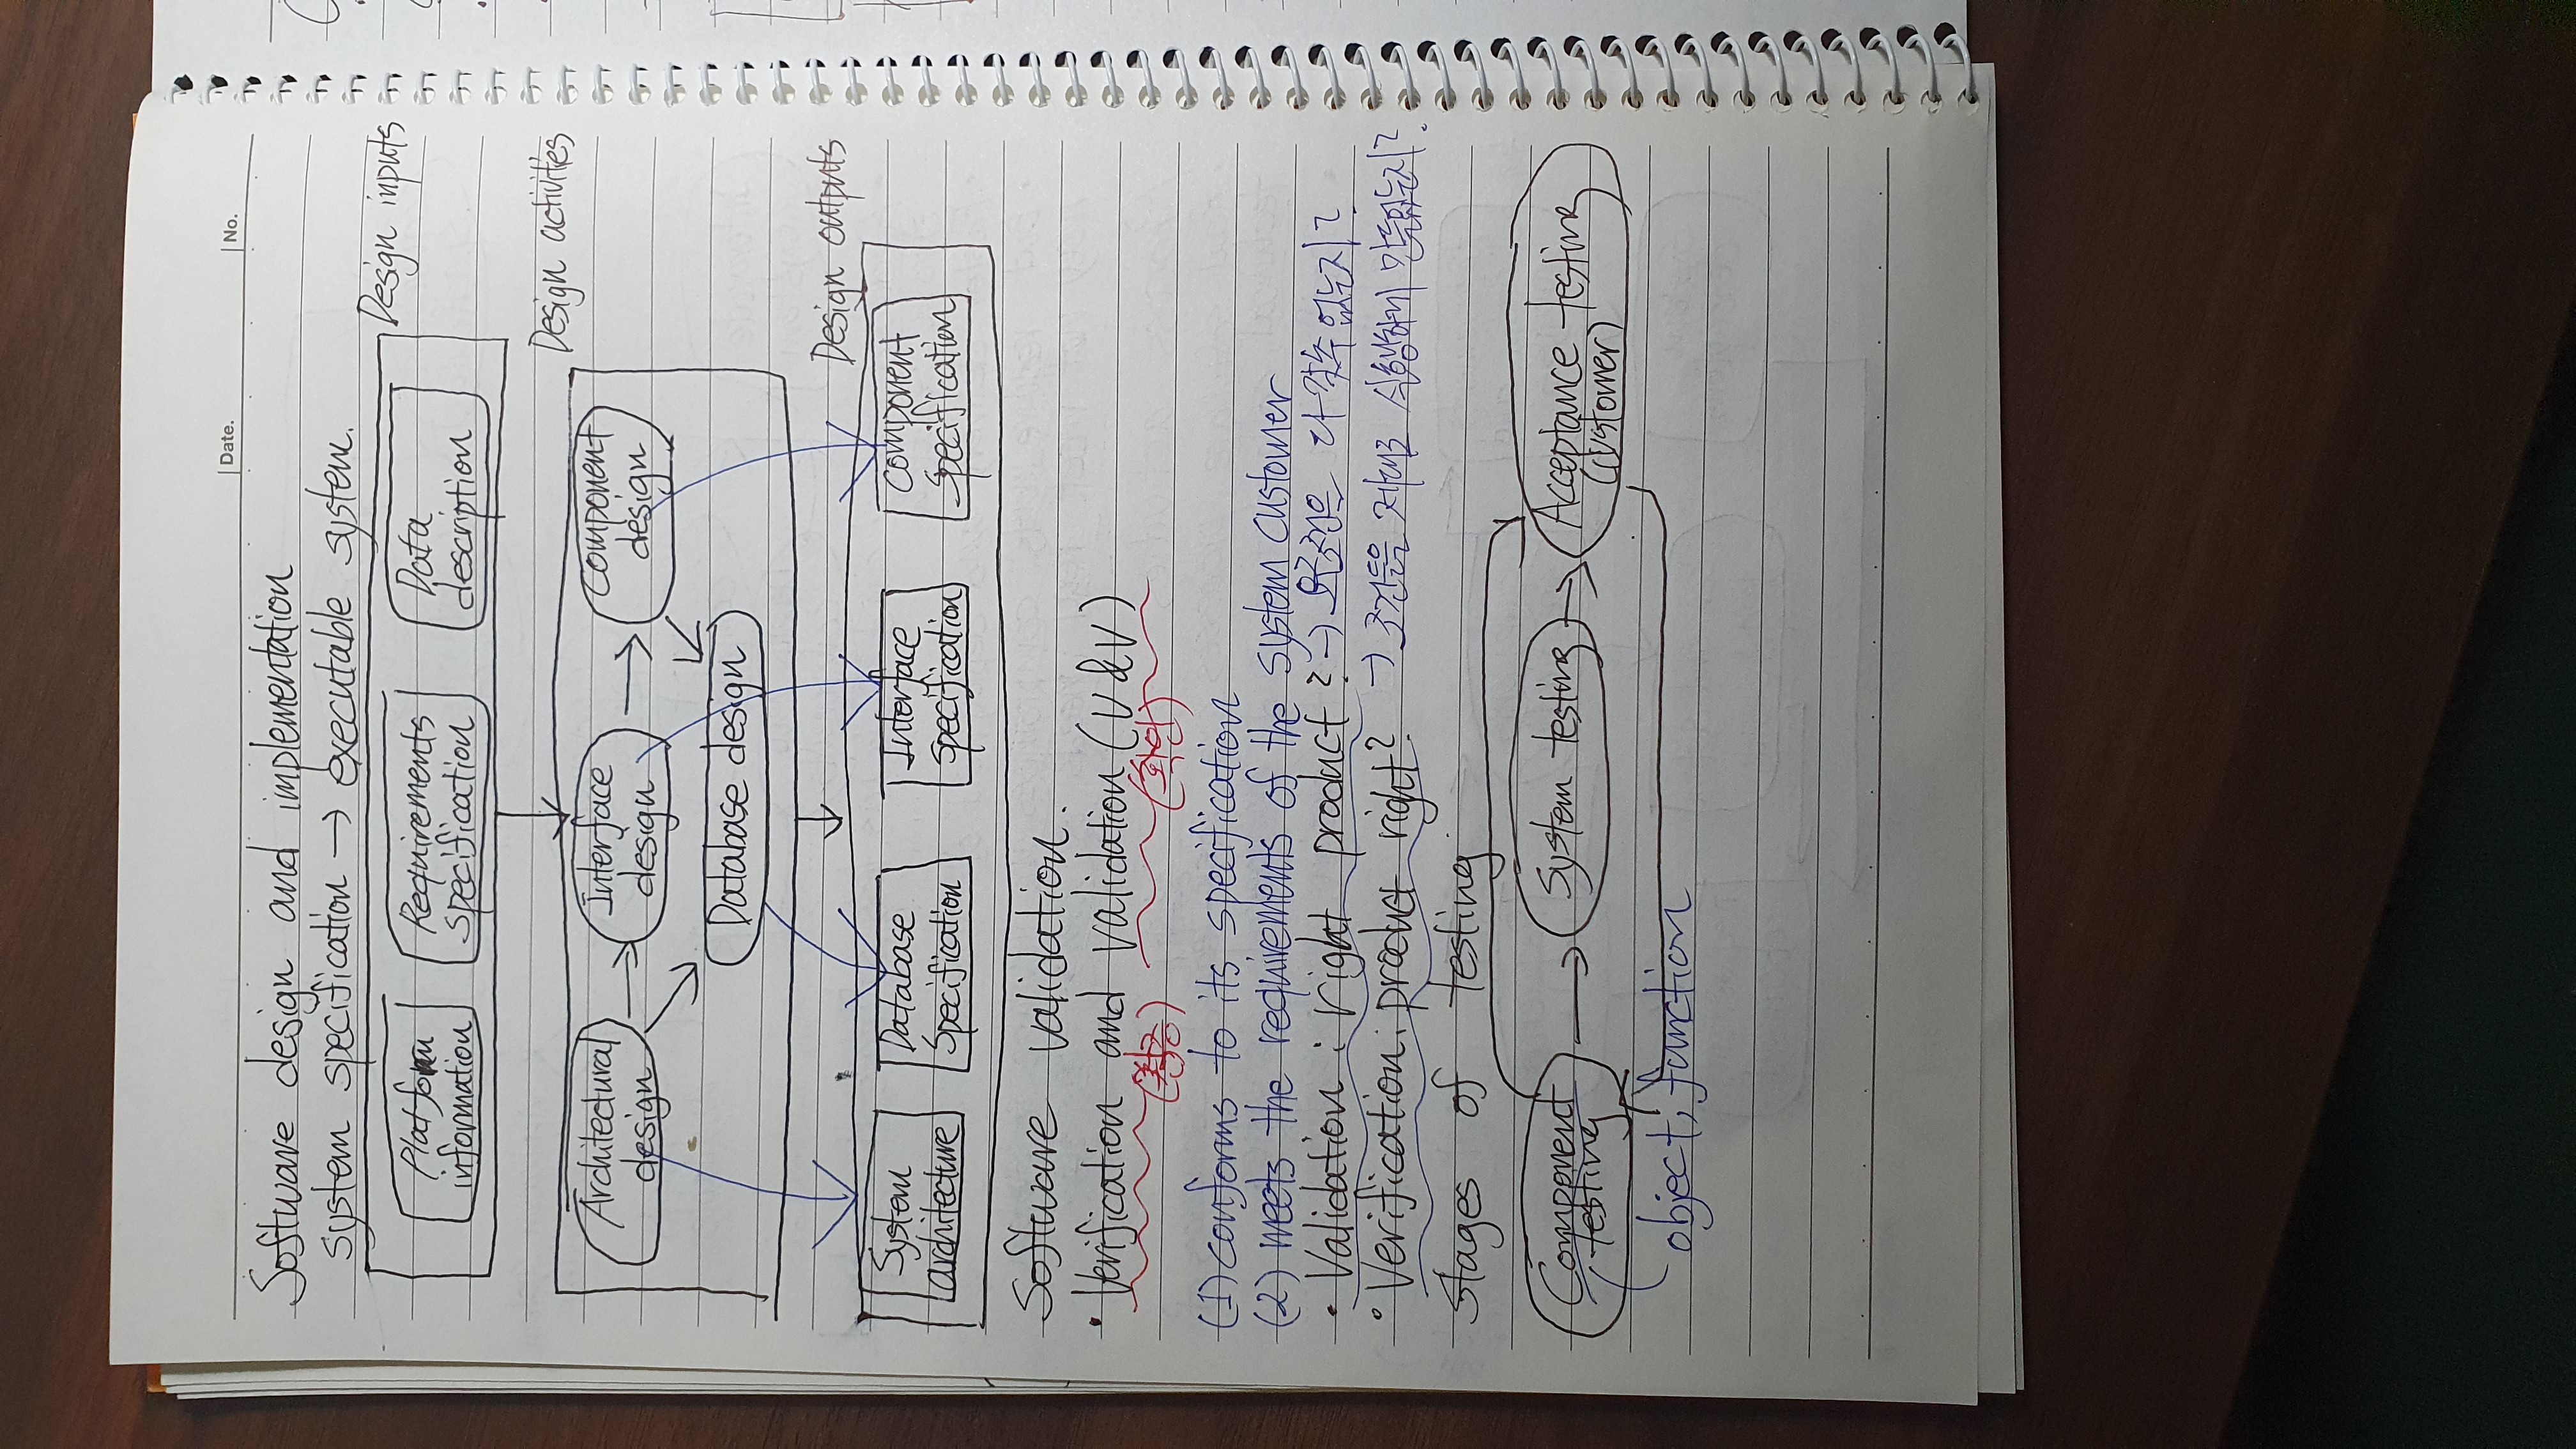 Date.
No.
Software design and implementation
system specification → executable system.
Design inputs
Platform information
Requirements specification
Data description
Design activities
Architectural design
Interface design
Component design
Database design
Design outputs
System architecture
Database Specification
Interface specification
Component specification
Software validation.
• Verification and validation (V & V)
(확인)
(1) conforms to its specification
(2) meets the requirements of the system customer
• Validation : right product? → 다 갖추었는지?
• Verification : product right? → 조건들을 제대로 실행하게 만들었는지?
Stages of testing
Component testing
System testing
Acceptance testing
(customer)
object, function